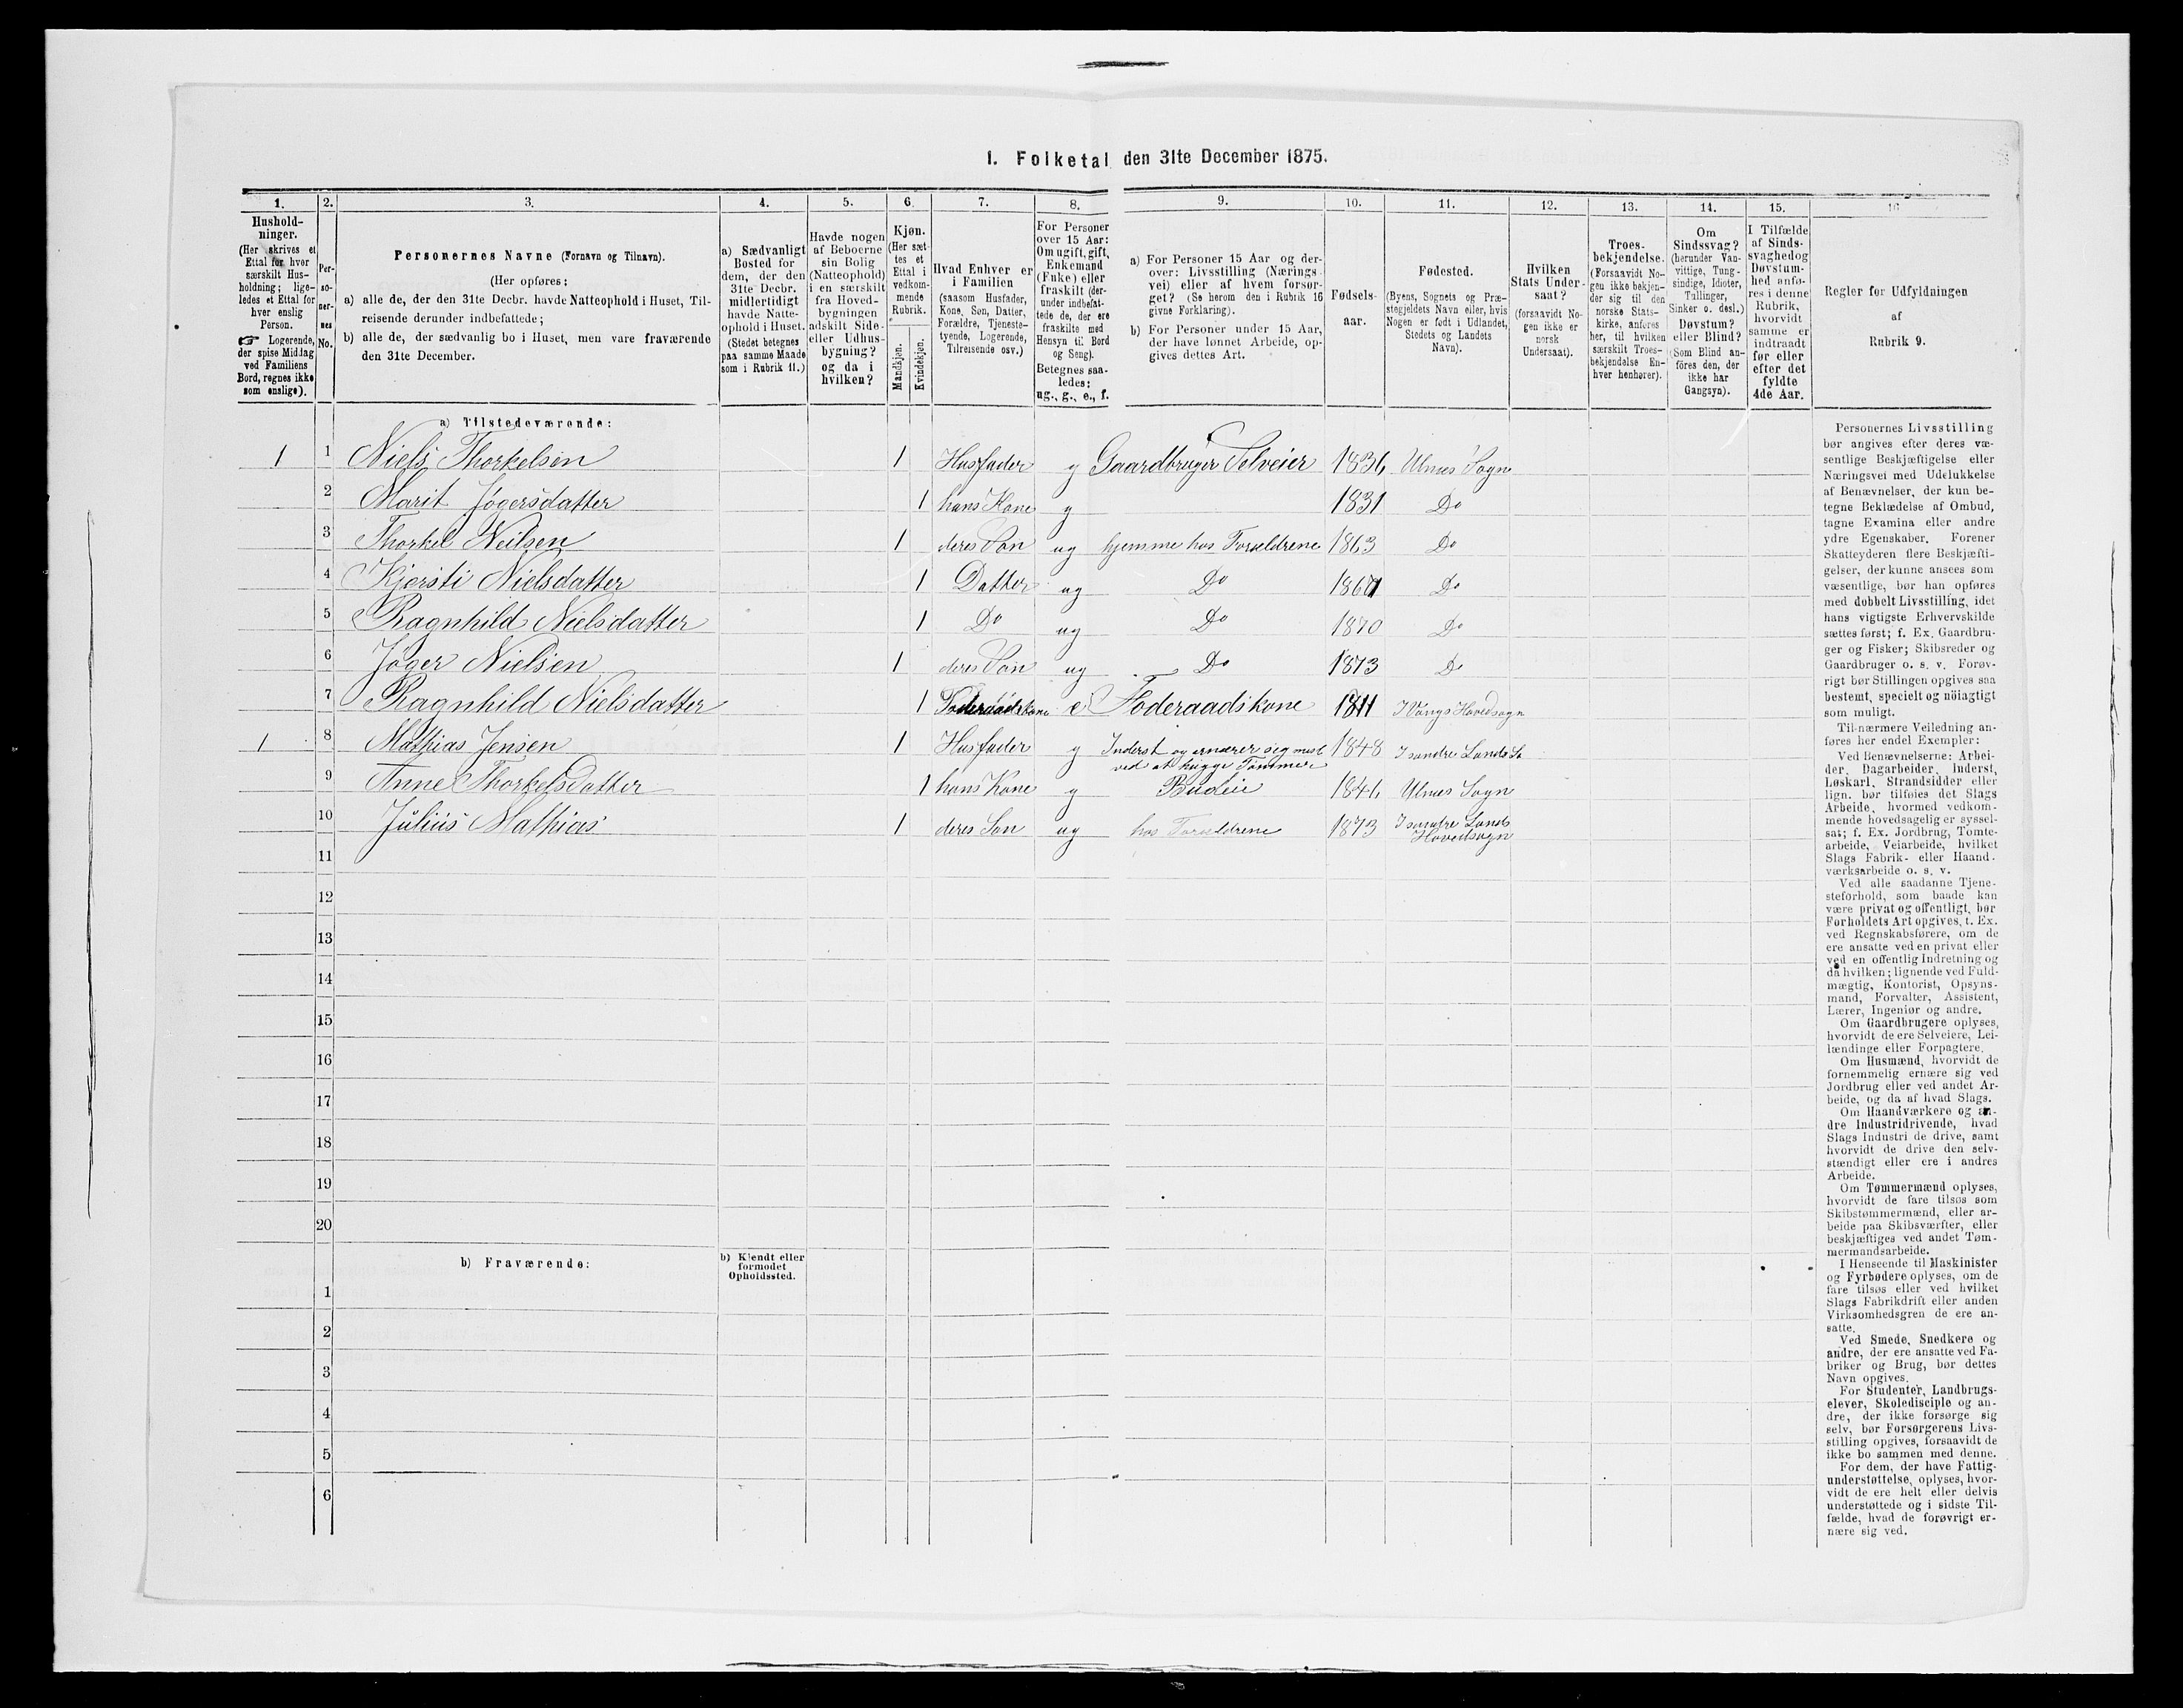 1. Folketal den 31te December 1875.
1.
2.
3.
4.
5.
6.
7.
8.
9.
10.
11.
12.
13.
14.
15.
16
Hushold-
ninger.
(Her skrives et
Ettal for hver
særskilt Hus-
holdning; lige-
ledes et Ettal for
hver enslig
Person.
☞ Logerende,
der spise Middag
ved Familiens
Bord, regnes ikke
som enslige).
Per-
so-
ner-
nes
No.
Personernes Navne (Fornavn og Tilnavn).
(Her opføres:
a) alle de, der den 31te Decbr. havde Natteophold i Huset, Til-
reisende derunder indbefattede;
b) alle de, der sædvanlig bo i Huset, men vare fraværende
den 31te December.
a) Sædvanligt
Bosted for
dem, der den
31te Decbr.
midlertidigt
havde Natte-
ophold i Huset.
(Stedet betegnes
paa samme Maade
som i Rubrik 11.)
Havde nogen
af Beboerne
sin Bolig
(Natteophold)
i en særskilt
fra Hoved-
bygningen
adskilt Side-
eller Udhus-
bygning?
og da i
hvilken?
Kjøn.
(Her sæt-
tes et
Ettal i
vedkom-
mende
Rubrik.
Mandkjøn.
Kvindekjøn.
Hvad Enhver er
i Familien
(saasom Husfader,
Kone, Søn, Datter,
Forældre, Tjeneste-
tyende, Logerende,
Tilreisende osv.)
For Personer
over 15 Aar:
Om ugift, gift,
Enkemand
(Enke) eller
fraskilt (der-
under indbefat-
tede de, der ere
fraskilte med
Hensyn til Bord
og Seng).
Betegnes saa-
ledes:
ug., g., e., f.
a) For Personer 15 Aar og der-
over: Livsstilling (Nærings-
vei) eller af hvem forsør-
get? (Se herom den i Rubrik 16
givne Forklaring).
b) For Personer under 15 Aar,
der have lønnet Arbeide, op-
gives dettes Art.
Fødsels-
aar.
Fødested.
(Byens, Sognets og Præ-
stegjeldets Navn eller, hvis
Nogen er født i Udlandet,
Stedets og Landets
Navn).
Hvilken
Stats Under-
saat?
(forsaavidt No-
gen ikke er
norsk
Undersaat).
Troes-
bekjendelse.
(Forsaavidt No-
gen ikke bekjen-
der sig til den
norske Stats-
kirke, anføres
her, til hvilken
særskilt Troes-
bekjendelse En-
hver henhører).
Om
Sindssvag?
(herunder Van-
vittige, Tung-
sindige, Idioter,
Tullinger,
Sinker o. desl.)
Døvstum?
eller Blind?
(Som Blind an-
føres den, der
ikke har
Gangsyn).
I Tilfælde
af Sinds-
svaghed og
Døvstum-
hed anfø-
res i denne
Rubrik,
hvorvidt
samme er
indtraadt
før eller
efter det
fyldte
4de Aar.
Regler for Udfyldningen
af
Rubrik 9.
a) Tilstedeværende:
1 1 Niels Thorkelsen 1 Husfader g Gaardbruger Selveier 1836 Ulnes Sogn
2 Marit Jøgersdatter 1 hans Kone g 1831 Do
3 Thorkel Neilsen 1 deres Søn ug hjemme hos Forældrene 1863 Do
4 Kjersti Nielsdatter 1 Datter ug Do 1867 Do
5 Ragnhild Nielsdatter 1 Do ug Do 1870 Do
6 Jøger Nielsen 1 deres Søn ug Do 1873 Do
7 Ragnhild Nielsdatter 1 Foderaadskone e Foderaadskone 1811 I Vangs Hovedsogn
1 8 Mathias Jensen 1 Husfader g Inderst og ernærer seg mest 1848 I søndre Lands
ved at hugge Tømmer
9 Anne Thorkelsdatter 1 hans Kone g Budeie 1846 Ulnes Sogn
10 Julius Mathias 1 deres Søn ug hos Forældrene 1873 I søndre Lands
Hovedsogn
11
12
13
14
15
16
17
18
19
20
b) Fraværende:
b) Kjendt eller
formodet
Opholdssted.
1
2
3
4
5
6
Personernes Livsstilling
bør angives efter deres væ-
sentlige Beskjæftigelse eller
Næringsvei med Udelukkelse
af Benævnelser, der kun be-
tegne Beklædelse af Ombud,
tagne Examina eller andre
ydre Egenskaber. Forener
Skatteyderen flere Beskjæfti-
gelser, der kunne ansees som
væsentlige, bør han opføres
med dobbelt Livsstilling, idet
hans vigtigste Erhvervskilde
sættes først; f. Ex. Gaardbru-
ger og Fisker; Skibsreder og
Gaardbruger o. s. v. Forøv-
rigt bør Stillingen opgives saa
bestemt, specielt og nöiagtigt
som muligt.
Til nærmere Veiledning an-
føres her endel Exempler:
Ved Benævnelserne: Arbei-
der, Dagarbeider, Inderst,
Løskarl, Strandsidder eller
lign. bør tilføies det Slags
Arbeide, hvormed vedkom-
mende hovedsagelig er syssel-
sat; f. Ex. Jordbrug, Tomte-
arbeide, Veiarbeide, hvilket
Slags Fabrik- eller Haand-
værksarbeide o. s. v.
Ved alle saadanne Tjene-
steforhold, som baade kan
være privat og offentligt, bør
Forholdets Art opgives, t. Ex.
ved Regnskabsførere, om de
ere ansatte ved en privat eller
ved en offentlig Indretning og
da hvilken; lignende ved Fuld-
mægtig, Kontorist, Opsyns-
mand, Forvalter, Assistent,
Lærer, Ingeniør og andre.
Om Gaardbrugere oplyses,
hvorvidt de ere Selveiere, Lei-
lændinge eller Forpagtere.
Om Husmænd, hvorvidt de
fornemmelig ernære sig ved
Jordbrug eller ved andet Ar-
beide, og da af hvad Slags.
Om Haandværkere og an-
dre Industridrivende, hvad
Slags Industri de drive, samt
hvorvidt de drive den selv-
stændigt eller ere i andres
Arbeide.
Om Tømmermænd oplyses,
hvorvidt de fare tilsøs som
Skibstømmermænd, eller ar-
beide paa Skibsværfter, eller
beskjæftiges ved andet Tøm-
mermandsarbeide.
I Henseende til Maskinister
og Fyrbødere oplyses, om de
fare tilsøs eller ved hvilket
Slags Fabrikdrift eller anden
Virksomhedsgren de ere an-
satte.
Ved Smede, Snedkere og
andre, der ere ansatte ved Fa-
briker og Brug, bør dettes
Navn opgives.
For Studenter, Landbrugs-
elever, Skoledisciple og an-
dre, der ikke forsørge sig
selv, bør Forsørgerens Livs-
stilling opgives, forsaavidt de
ikke bo sammen med denne.
For dem, der have Fattig-
understøttelse, oplyses, hvor-
vidt de ere helt eller delvis
understøttede og i sidste Til-
fælde, hvad de forøvrigt er-
nære sig ved.